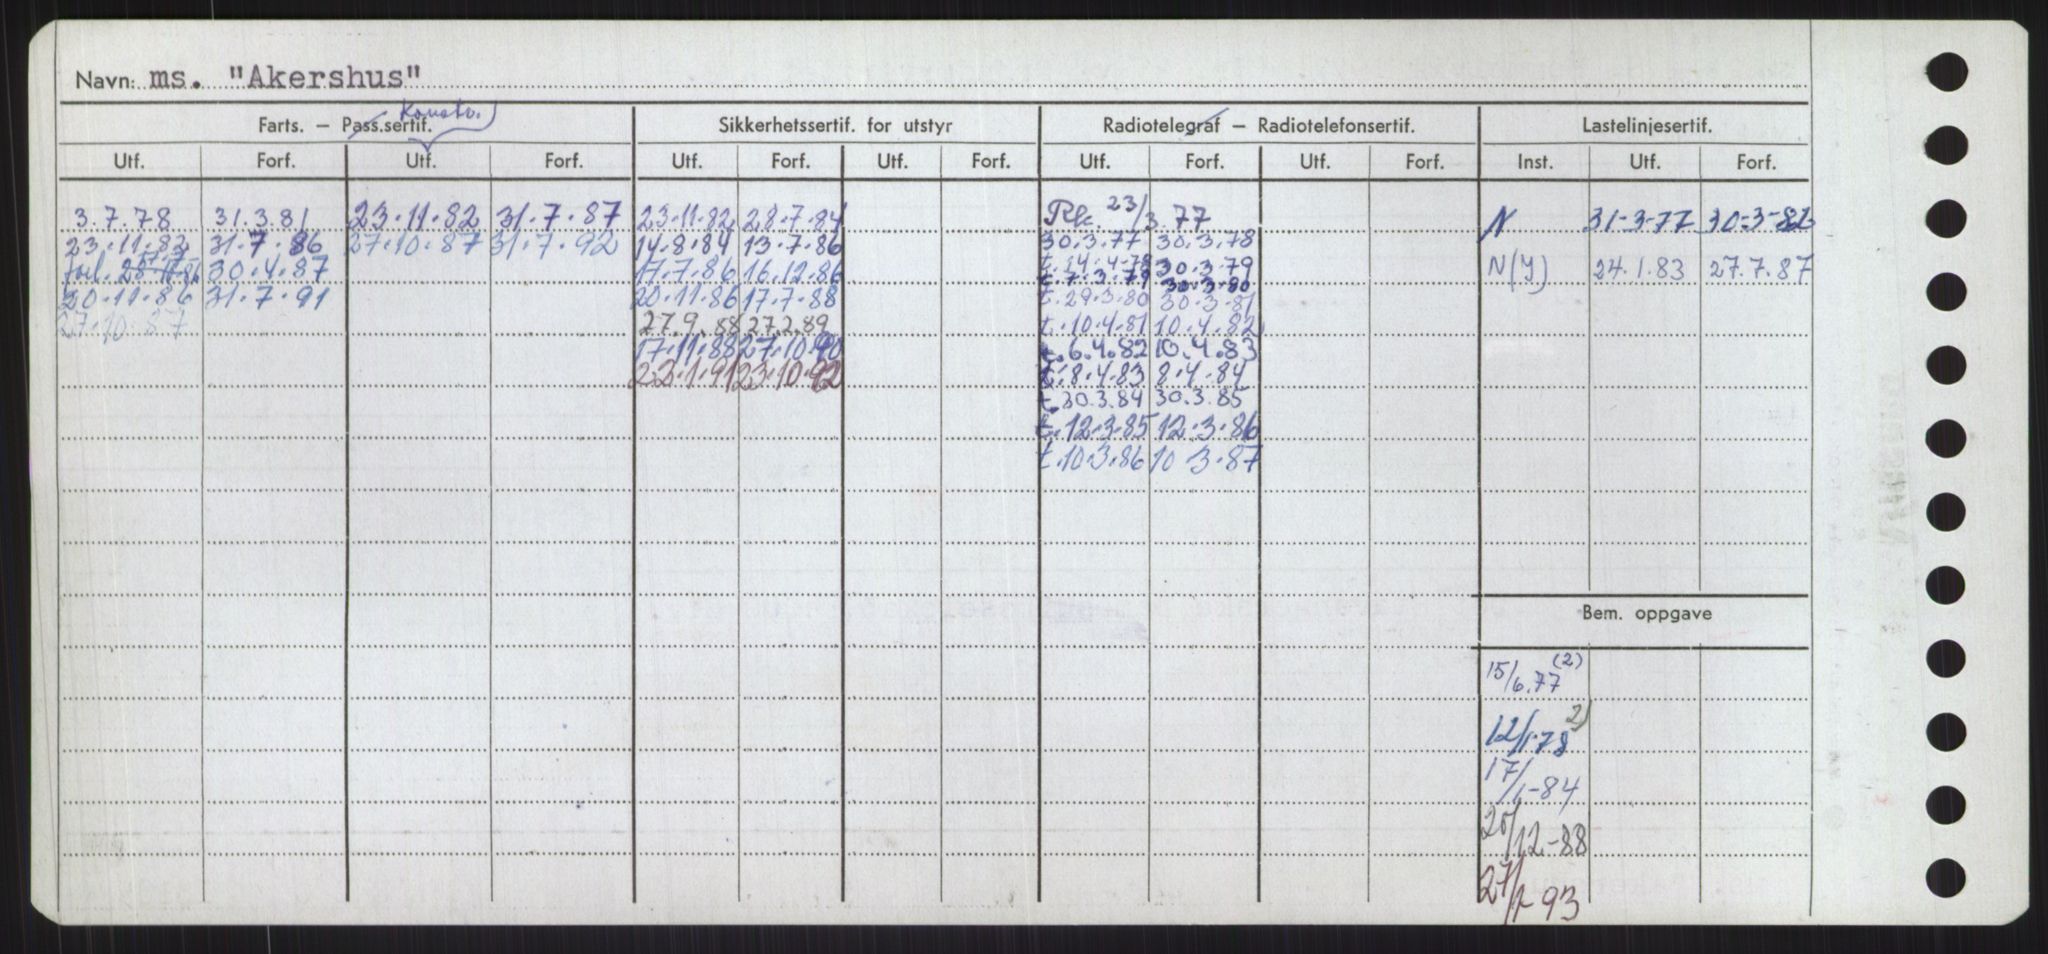 Navn: ms. "Akershus"
Konstr.
Farts. – Pass.sertif. Sikkerhetssertif. for utstyr Radiotelegraf – Radiotelefonsertif. Lastelinjesertif.
Utf. Forf. Utf. Forf. Utf. Forf. Utf. Forf. Utf. Forf. Utf. Forf. Inst. Utf. Forf.
3.7.78 31.3.81 23.11.82 31.7.87 23.11.82 28.7.84 23/3.77 N 31-3-77 30-3-82
23.11.82 31.7.86 27.10.87 31.7.92 14.8.84 13.7.86 30.3.77 30.3.78
30.4.87 17.7.86 16.12.86 t.14.4.78 30.3.79 N(Y) 24.1.83 27.7.87
t.7.3.79 30.3.80
20.11.86 31.7.91 20.11.86 17.7.88 t.29.3.80 30.3.81
27.10.87 27.9.88 27.2.89 t.10.4.81 10.4.82
17.11.88 27.10.90 t.6.4.82 10.4.83
23.1.91 23.10.92 t.8.4.83 8.4.84
t.30.3.84 30.3.85
t.12.3.85 12.3.86
t.10.3.86 10.3.87
Bem. oppgave
15/6.77 (2)
12/1.78 2)
17/1-84
20/12-88
27/1-93